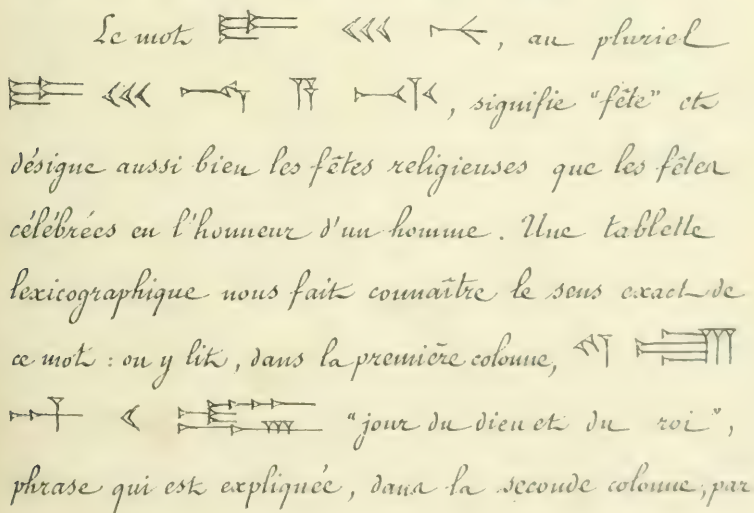 Le mot 𒄿 𒌍 𒉡, au pluriel
𒄿 𒌍 𒈾 𒀀 𒋾, signifie "fête" et
désigne aussi bien les fêtes religieuses que les fêtes
célébrées en l'honneur d'un homme. Une tablette
lexicographique nous fait connaître le sens exact de
ce mot : on y lit, dans la première colonne, 𒌓
𒀭 𒌋 𒈗 "jour du dieu et du roi",
phrase qui est expliquée, dans la seconde colonne, par